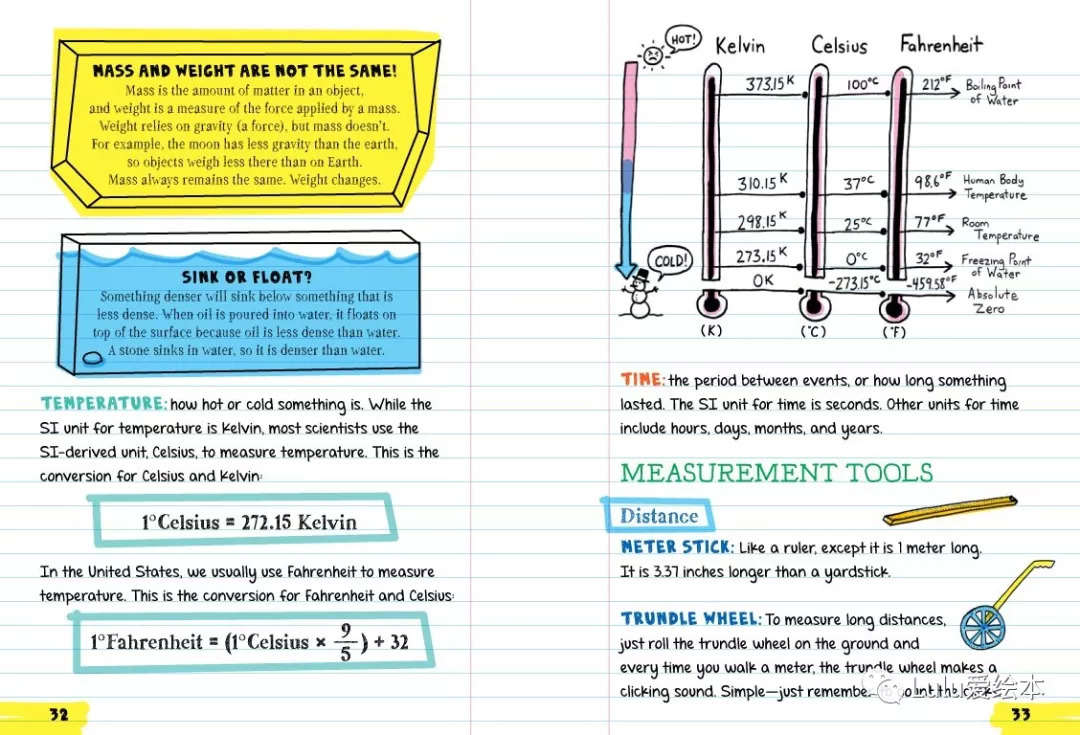 MASS AND WEIGHT ARE NOT THE SAME!
Mass is the amount of matter in an object,
and weight is a measure of the force applied by a mass.
Weight relies on gravity (a force), but mass doesn't.
For example, the moon has less gravity than the earth,
so objects weigh less there than on Earth.
Mass always remains the same. Weight changes.
SINK OR FLOAT?
Something denser will sink below something that is
less dense. When oil is poured into water, it floats on
top of the surface because oil is less dense than water.
A stone sinks in water, so it is denser than water.
TEMPERATURE: how hot or cold something is. While the
SI unit for temperature is Kelvin, most scientists use the
SI-derived unit, Celsius, to measure temperature. This is the
conversion for Celsius and Kelvin:
1°Celsius = 272.15 Kelvin
In the United States, we usually use Fahrenheit to measure
temperature. This is the conversion for Fahrenheit and Celsius:
1°Fahrenheit = (1°Celsius × 9/5) + 32
32
HOT!
Kelvin Celsius Fahrenheit
373.15 K 100°C 212°F Boiling Point
of Water
310.15 K 37°C 98.6°F Human Body
Temperature
298.15 K 25°C 77°F Room
Temperature
COLD!
273.15 K 0°C 32°F Freezing Point
of Water
0K -273.15°C -459.58°F Absolute
Zero
(K) (°C) (°F)
TIME: the period between events, or how long something
lasted. The SI unit for time is seconds. Other units for time
include hours, days, months, and years.
MEASUREMENT TOOLS
Distance
METER STICK: Like a ruler, except it is 1 meter long.
It is 3.37 inches longer than a yardstick.
TRUNDLE WHEEL: To measure long distances,
just roll the trundle wheel on the ground and
every time you walk a meter, the trundle wheel makes a
clicking sound. Simple—just remember to count the
Lulu爱绘本
33